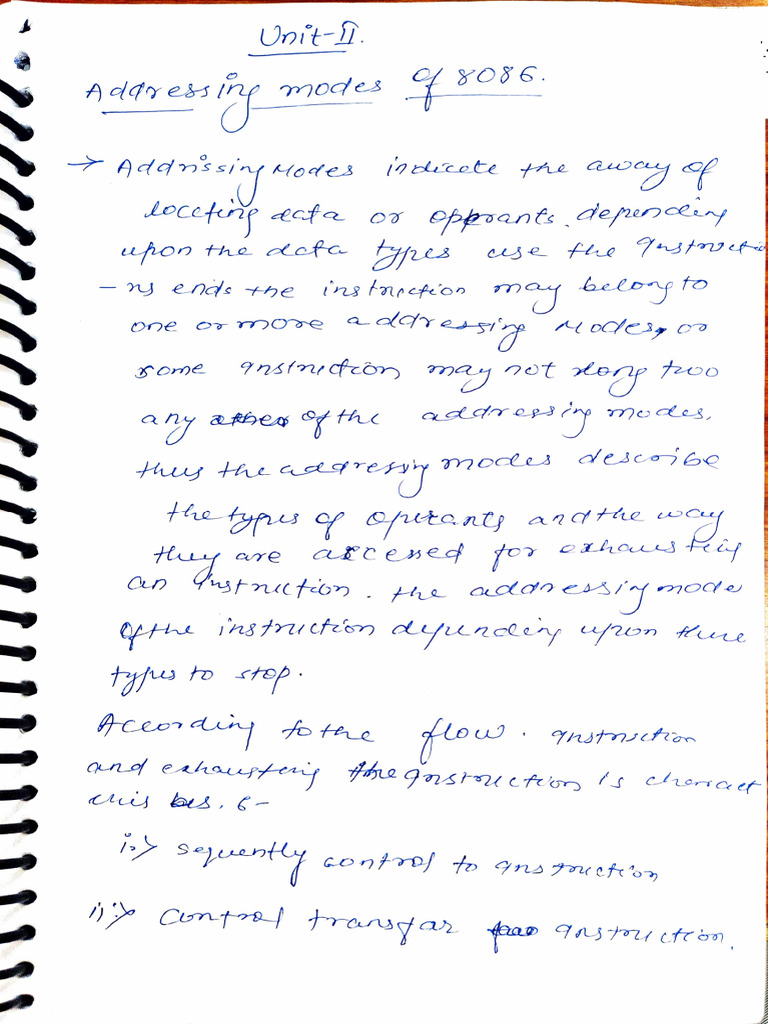 Unit-II.
Addressing modes of 8086.
→ Addrissing Modes indicete the away of
loceting data or opprants. depending
upon the data types use the instructio
- ns ends the instruction may belong to
one or more addressing Modes, or
some instruction may not along two
any of the addressing modes.
thus the addressing modes describe
the types of operants and the way
they are accessed for exhausting
an instruction. the addressing mode
of the instruction depending upon there
types to stop.
According to the flow. instruction
and exhausting the instruction is cheract
this as. 6-
i:> sequently control to instruction
ii:> control transfar instruction.